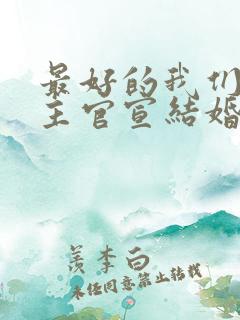 最好的我们
主官宣结婚
羡李白
未经同意禁止转载